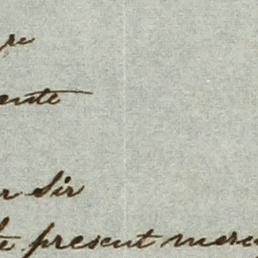 re
ente
r Sir
te present merc